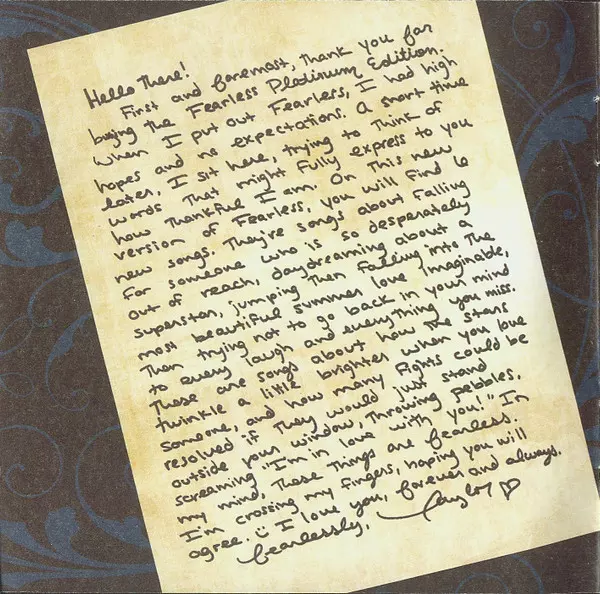 Hello there!
First and foremost, thank you for
buying the Fearless Platinum Edition.
When I put out Fearless, I had high
hopes and no expectations. A short time
later, I sit here, trying to think of
words that might fully express to you
how thankful I am. On this new
version of Fearless, you will find 6
new songs. They're songs about falling
for someone who is so desperately
out of reach, daydreaming about a
superstar, jumping then falling into the
most beautiful summer love imaginable,
then trying not to go back in your mind
to every laugh and everything you miss.
These are songs about how the stars
twinkle a little brighter when you love
someone, and how many fights could be
resolved if they would just stand
outside your window, throwing pebbles,
screaming "I'm in love with you!" In
my mind, these things are fearless.
I'm crossing my fingers, hoping you will
agree. :) I love you, forever and always.
fearlessly,
Taylor ♡